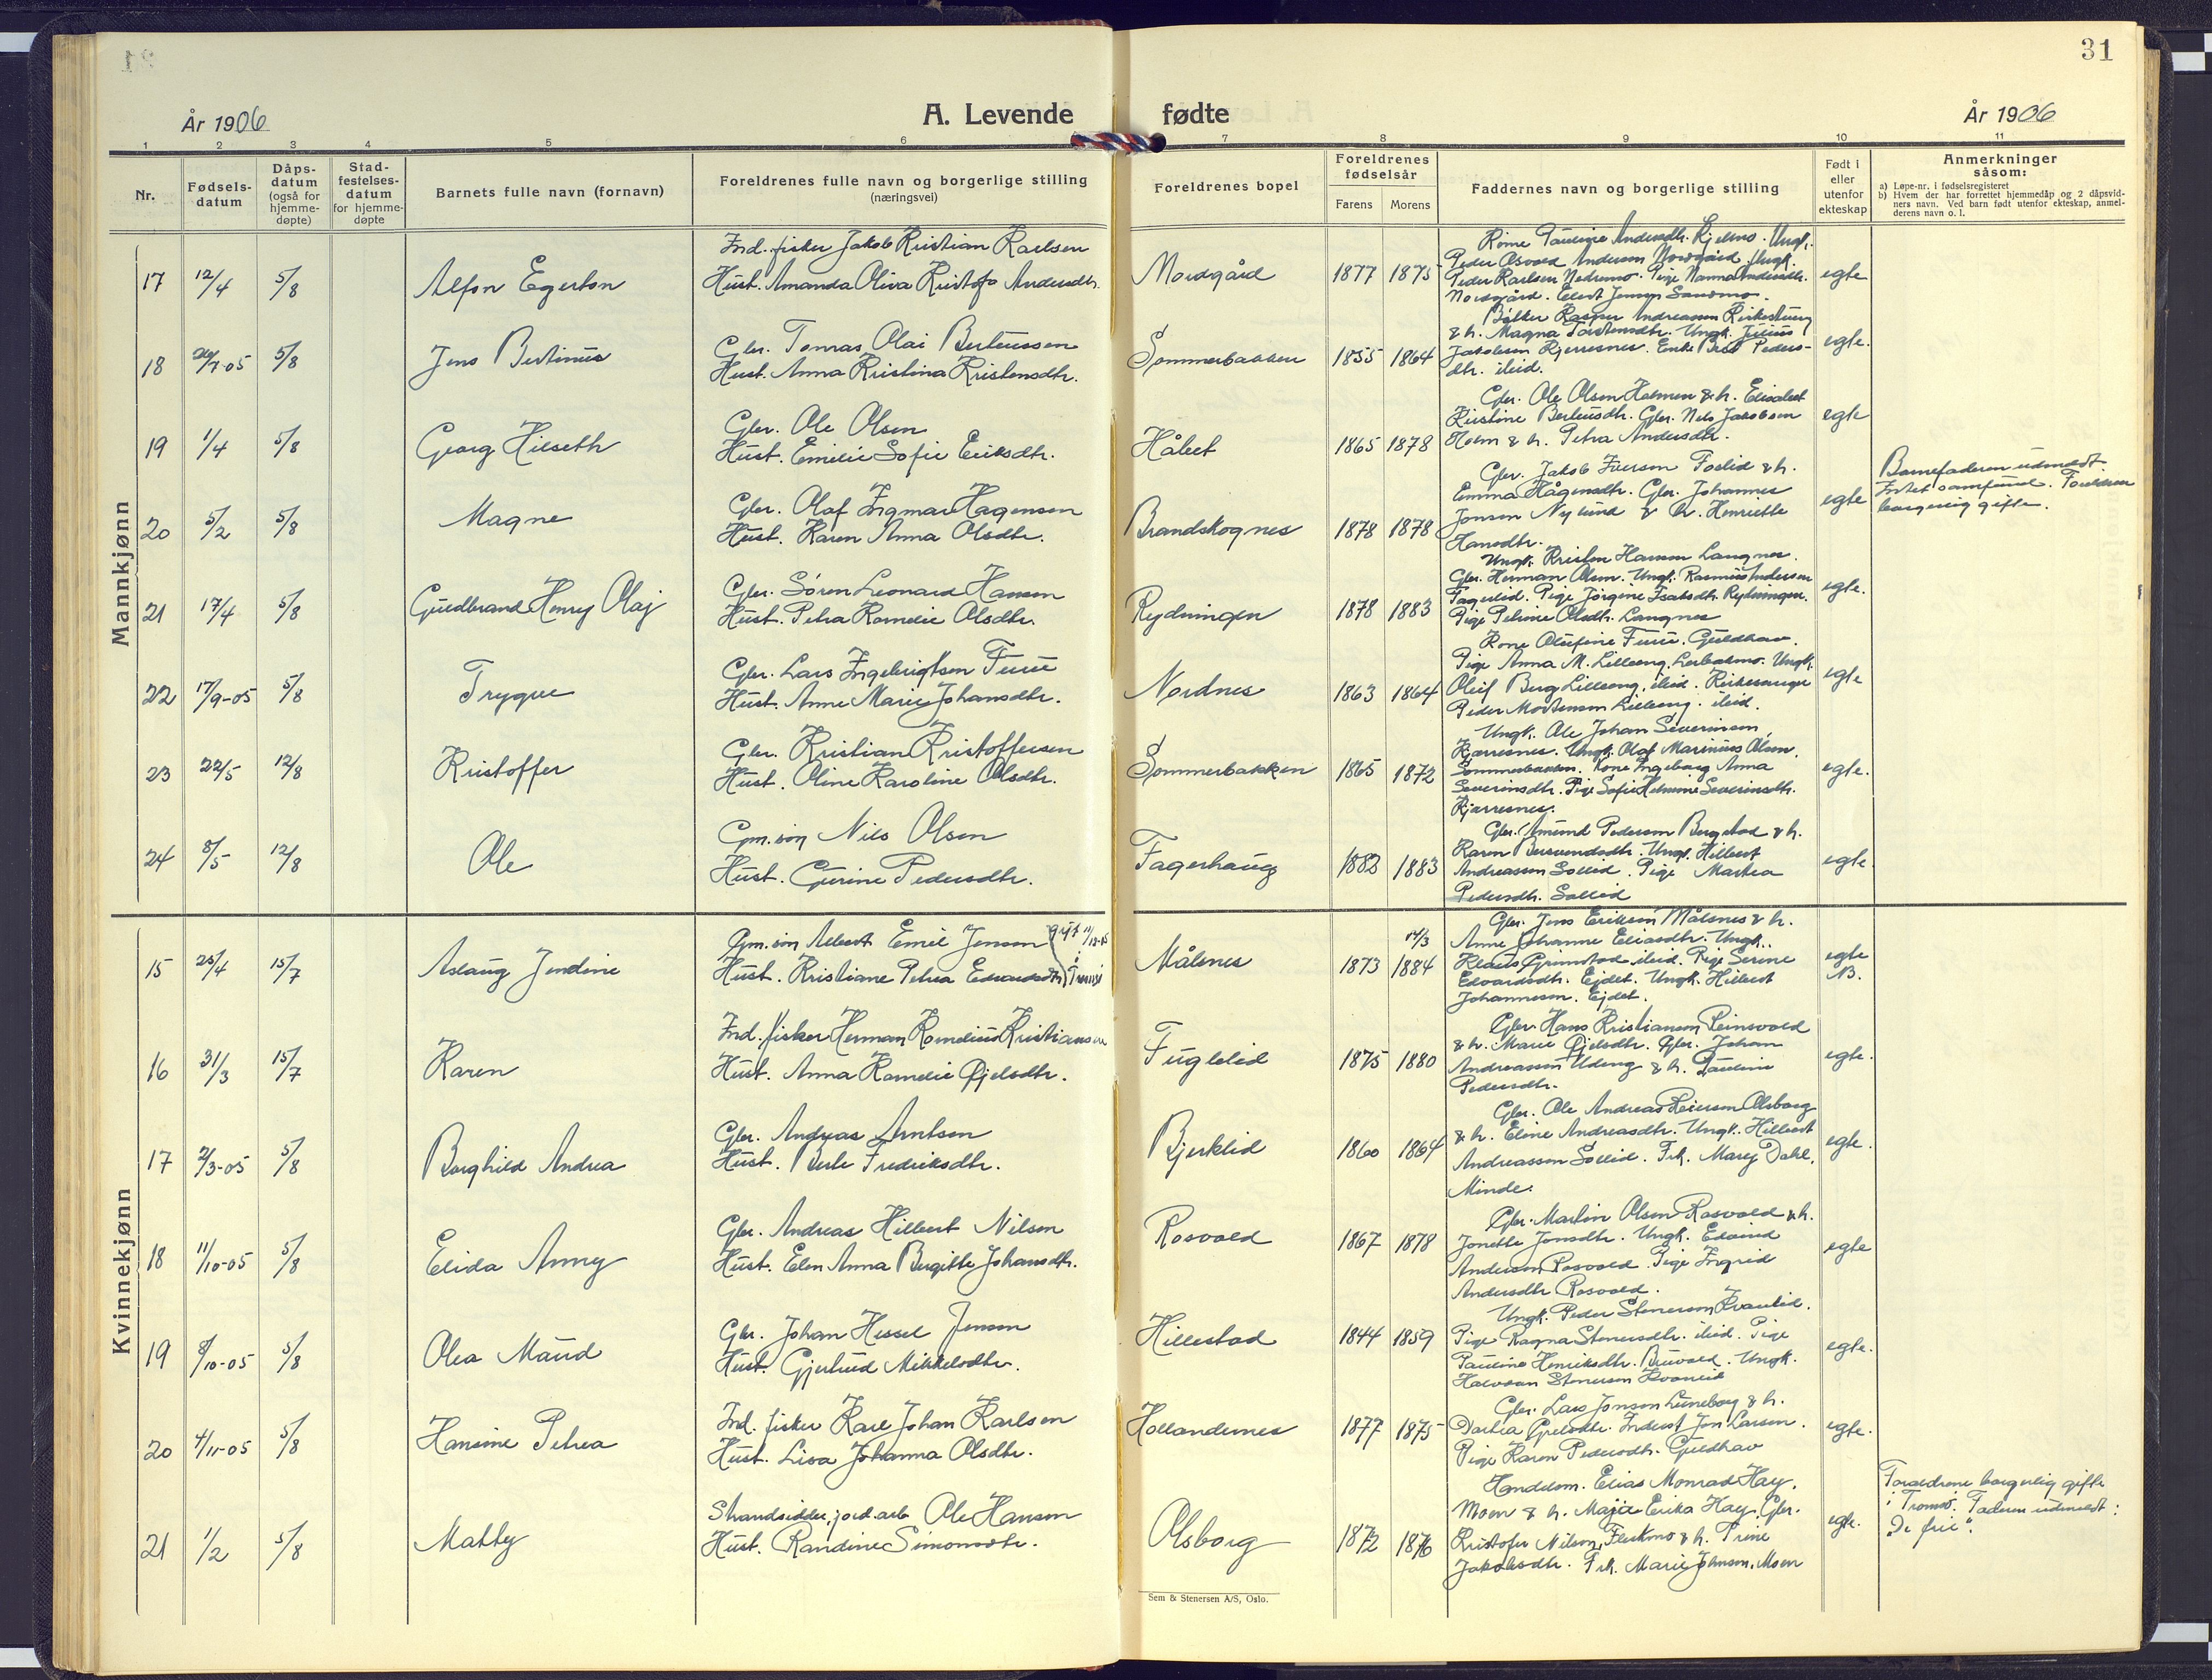 31
År 1906
A. Levende fødte
År 1906
1 2 3 4 5 6 7 8 9 10 11
Nr.
Fødsels-
datum
Dåps-
datum
(også for
hjemme-
døpte)
Stad-
festelses-
datum
for hjemme-
døpte
Barnets fulle navn (fornavn)
Foreldrenes fulle navn og borgerlige stilling
(næringsvei)
Foreldrenes bopel
Foreldrenes
fødselsår
Farens Morens
Faddernes navn og borgerlige stilling
Født i
eller
utenfor
ekteskap
Anmerkninger
såsom:
a) Løpe-nr. i fødselsregisteret
b) Hvem der har forrettet hjemmedåp og 2 dåpsvid-
ners navn. Ved barn født utenfor ekteskap, anmel-
derens navn o. l.
Mannkjønn
17 12/4 5/8 Alfon Egerton
Ind. fisker Jakob Kristian Karlsen
Hust. Amanda Oliva Kristofa Andersdtr.
Nordgård 1877 1875
Kone Pauline Andersdtr. Kjelmo. Ungk.
Peder Osvald Andersen Nordgård. Ungk.
Peder Karlsen Nedremo. Pige Nanna Andersdtr.
Nordgård. Elert Jensen Sandmo.
egte
18 26/7-05 5/8 Jens Bertinus
Gbr. Tomas Olai Berteussen
Hust. Anna Kristina Kristensdtr.
Sommerbakken 1855 1864
Kasper Andreassen Kirkestueng
& h. Magna Torstensdtr. Ungk. Julius
Jakobsen Kjerresnes. Enke Peders-
dtr. ibid.
egte.
19 1/4 5/8 Georg Hilseth
Gbr. Ole Olsen
Hust. Emilie Sofie Eriksdtr.
Håbet 1865 1878
Gbr. Ole Olsen Holmen & h. Elisabet
Kristine Berteusdtr. Gbr. Nils Jakobsen
Holm & h. Petra Andersdtr.
egte
20 5/2 5/8 Magne
Gbr. Olaf Ingmar Hagensen
Hust. Karen Anna Olsdtr.
Brandskognes 1878 1878
Gbr. Jakob Iversen Foslid & h.
Emma Hågensdtr. Gbr. Johannes
Jonsen Nylund & h. Henriette
Hansdtr.
egte
Barnefaderen udmeldt.
Intet samfund. Foreldrene
borgerlig gifte.
21 17/4 5/8 Guldbrand Henry Olaj
Gbr. Søren Leonard Hansen
Hust. Petra Kornelie Olsdtr.
Rydningen 1878 1883
Ungk. Kristen Hansen Langnes.
Gbr. Herman Olsen. Ungk. Rasmus Andersen
Fagerlid. Pige Jørgine Isaksdtr. Rydningen.
Pige Petrine Olsdtr. Langnes
egte.
22 17/9-05 5/8 Trygve
Gbr. Lars Ingebrigtsen Furu
Hust. Anne Marie Johansdtr.
Nordnes 1863 1864
Kone Olufine Furu. Guldhav.
Pige Anna M. Lilleeng. Ungk.
Oleif Berg Lilleeng, ibid. Kirkesanger
Peder Mortensen Lilleeng. ibid.
egte
23 22/5 12/8 Kristoffer
Gbr. Kristian Kristoffersen
Hust. Oline Karoline Olsdtr.
Sommerbakken 1865 1872
Ungk. Ole Johan Severinsen,
Kjerresnes. Ungk. Olaf Marinius Olsen,
Sommerbakken. Kone Ingeborg Anna
Severinsdtr. Pige Sofie Helmine Severinsdtr.
Kjerresnes.
egte.
24 8/5 12/8 Ole
Gm. søn Nils Olsen
Hust. Gurine Pedersdtr.
Fagerhaug 1882 1883
Gbr. Amund Pedersen Bergstad & h.
Karen Bersvendsdtr. Ungk. Hilbert
Andreassen Sollid. Pige Martea
Pedersdtr. Sollid
egte.
Kvinnekjønn
15 25/4 15/7 Aslaug Jendine
Gm. søn Albert Emil Jensen
Hust. Kristiane Petrea Edvardsdtr.
gift 11/12-05
i
Tromsø
Målsnes 1873 14/3 1884
Gbr. Jens Eriksen Målsnes & h.
Anne Johanne Eliasdtr. Ungk.
Klaus Grimstad ibid. Pige Serine
Edvardsdtr. Ejdet. Ungk. Hilbert
Johannesen. Ejdet.
egte
N.B.
16 31/3 15/7 Karen
Ind. fisker Herman Kornelius Kristiansen
Hust. Anna Kornelie Gjelsdtr.
Fuglelid 1875 1880
Gbr. Hans Kristiansen Reinsvold
& h. Marie Gjelsdtr. Gbr. Johan
Andreassen Udeng & h. Pauline
Pedersdtr.
egte.
17 2/3-05 5/8 Borghild Andrea
Gbr. Andreas Arntsen
Hust. Berte Fredriksdtr.
Bjerklid 1860 1864
Gbr. Ole Andreas Reiersen Olsborg
& h. Eline Andreasdtr. Ungk. Hilbert
Andreassen Sollid. Frk. Marej Dahl,
Minde.
egte.
18 11/10-05 5/8 Elida Anny
Gbr. Andreas Hilbert Nilsen
Hust. Elen Anna Bergitte Johansdtr.
Rosvold 1867 1878
Gbr. Martin Olsen Rosvold & h.
Jonette Jonsdtr. Ungk. Edvind
Andersen Rosvold. Pige Ingrid
Andersdtr Rosvold.
egte
19 8/10-05 5/8 Olea Maud
Gbr. Johan Hessel Jensen
Hust. Gjertrud Mikkelsdtr.
Hillestad 1844 1859
Ungk. Peder Stenersen Kvanlid.
Pige Ragna Stenersdtr. ibid. Pige
Pauline Henriksdtr. Buvold. Ungk.
Halvdan Stenersen Kvanlid
egte.
20 4/11-05 5/8 Hansine Petrea
Ind. fisker Karl Johan Karlsen
Hust. Lisa Johanna Olsdtr.
Hollandernes 1877 1875
Gbr. Lars Jonsen Luneborg & h.
Dortea Gjelsdtr. Inderst Jon Larsen.
Pige Karen Pedersdtr. Guldhav
egte.
21 1/2 5/8 Matty
Strandsidder, jord. arb Ole Hansen
Hust. Randine Simonsdtr.
Olsborg 1872 1876
Handelsm. Elias Monrad Hay,
Moen & h. Maja Erika Hay. Gbr.
Kristofer Nilsen, Fleskmo & h. Trine
Jakobsdtr. Frk. Marie Johnsen, Moen
egte.
Foreldrene borgerlig gifte
i Tromsø. Faderen udmeldt:
"De frie".
Sem & Stenersen A/S, Oslo.